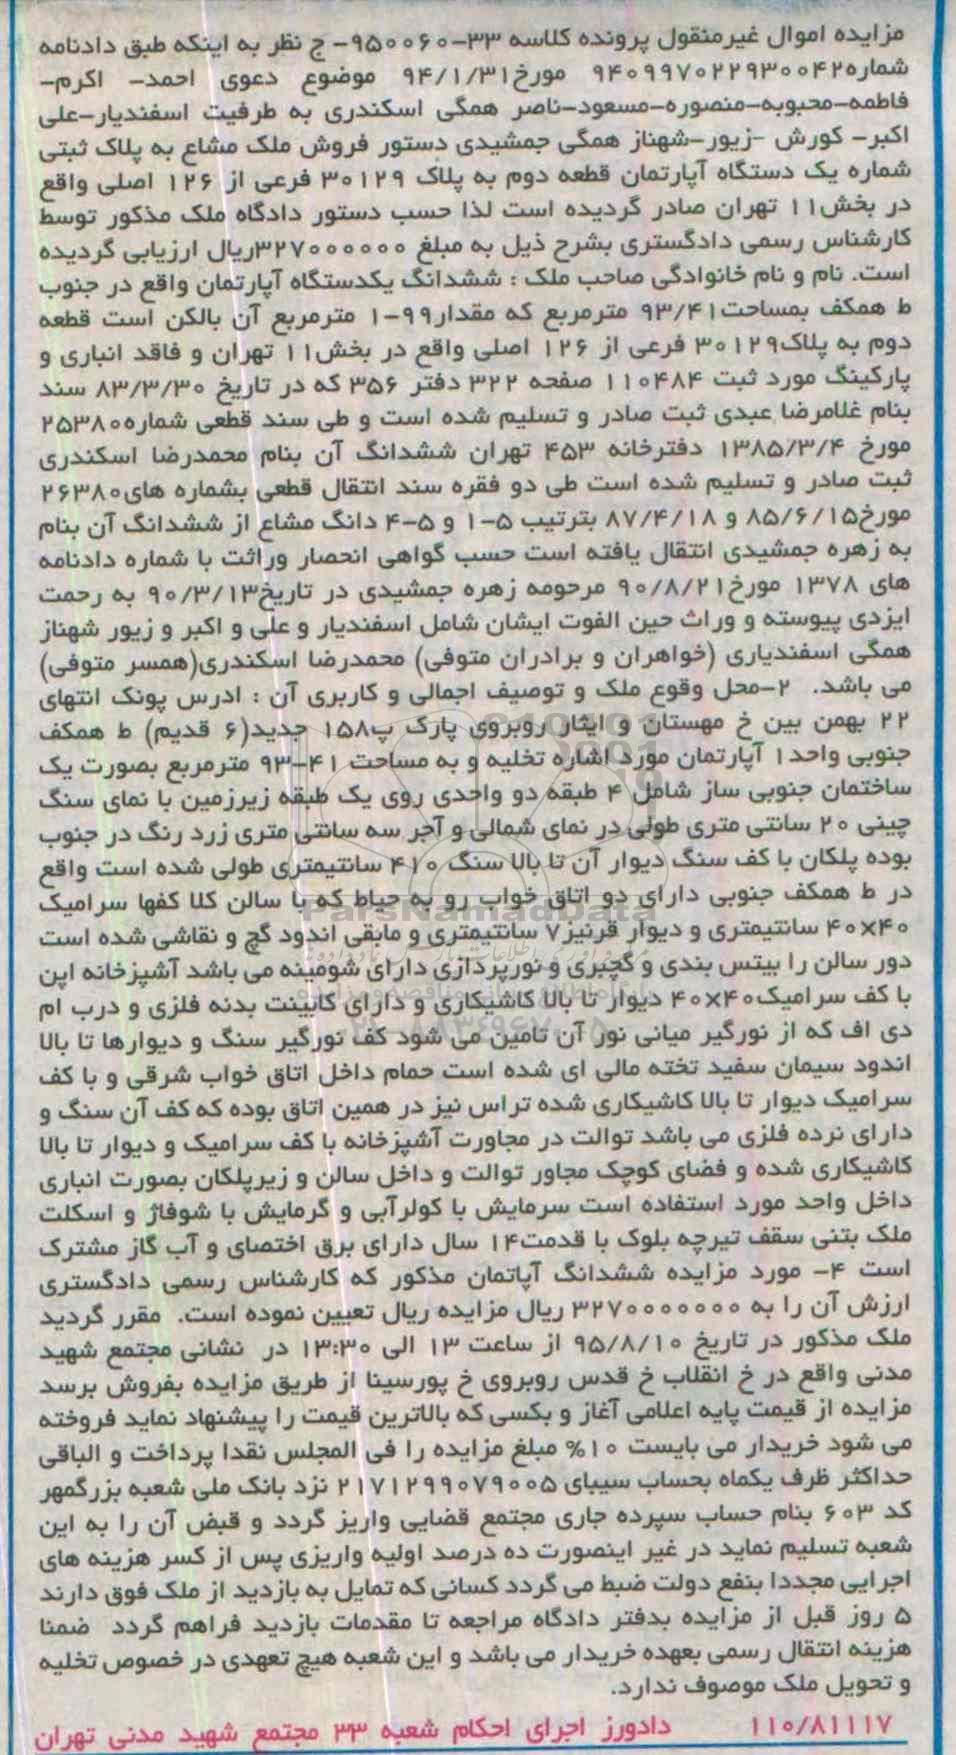 مزایده اموال غیرمنقول پرونده کلاسه ۳۳-۹۵۰۰۶۰- ج نظر به اینکه طبق دادنامه
شماره۹۴۰۹۹۷۰۲۲۹۳۰۰۴۲ مورخ۹۴/۱/۳۱ موضوع دعوی احمد- اکرم-
فاطمه-محبوبه-منصوره-مسعود-ناصر همگی اسکندری به طرفیت اسفندیار-علی
اکبر- کورش -زیور-شهناز همگی جمشیدی دستور فروش ملک مشاع به پلاک ثبتی
شماره یک دستگاه آپارتمان قطعه دوم به پلاک ۳۰۱۲۹ فرعی از ۱۲۶ اصلی واقع
در بخش۱۱ تهران صادر گردیده است لذا حسب دستور دادگاه ملک مذکور توسط
کارشناس رسمی دادگستری بشرح ذیل به مبلغ ۳۲۷۰۰۰۰۰۰۰ریال ارزیابی گردیده
است. نام و نام خانوادگی صاحب ملک : ششدانگ یکدستگاه آپارتمان واقع در جنوب
ط همکف بمساحت۹۳/۴۱ مترمربع که مقدار۹۹-۱ مترمربع آن بالکن است قطعه
دوم به پلاک۳۰۱۲۹ فرعی از ۱۲۶ اصلی واقع در بخش۱۱ تهران و فاقد انباری و
پارکینگ مورد ثبت ۱۱۰۴۸۴ صفحه ۳۲۲ دفتر ۳۵۶ که در تاریخ ۸۳/۳/۳۰ سند
بنام غلامرضا عبدی ثبت صادر و تسلیم شده است و طی سند قطعی شماره۲۵۳۸۰
مورخ ۱۳۸۵/۳/۴ دفترخانه ۴۵۳ تهران ششدانگ آن بنام محمدرضا اسکندری
ثبت صادر و تسلیم شده است طی دو فقره سند انتقال قطعی بشماره های۲۶۳۸۰
مورخ۸۵/۶/۱۵ و ۸۷/۴/۱۸ بترتیب ۵-۱ و ۵-۴ دانگ مشاع از ششدانگ آن بنام
به زهره جمشیدی انتقال یافته است حسب گواهی انحصار وراثت با شماره دادنامه
های ۱۳۷۸ مورخ۹۰/۸/۲۱ مرحومه زهره جمشیدی در تاریخ۹۰/۳/۱۳ به رحمت
ایزدی پیوسته و وراث حین الفوت ایشان شامل اسفندیار و علی و اکبر و زیور شهناز
همگی اسفندیاری (خواهران و برادران متوفی) محمدرضا اسکندری(همسر متوفی)
می باشد. ۲-محل وقوع ملک و توصیف اجمالی و کاربری آن : ادرس پونک انتهای
۲۲ بهمن بین خ مهستان و ایثار روبروی پارک پ۱۵۸ جدید(۶ قدیم) ط همکف
جنوبی واحد۱ آپارتمان مورد اشاره تخلیه و به مساحت ۴۱-۹۳ مترمربع بصورت یک
ساختمان جنوبی ساز شامل ۴ طبقه دو واحدی روی یک طبقه زیرزمین با نمای سنگ
چینی ۲۰ سانتی متری طولی در نمای شمالی و آجر سه سانتی متری زرد رنگ در جنوب
بوده پلکان با کف سنگ دیوار آن تا بالا سنگ ۴۱۰ سانتیمتری طولی شده است واقع
در ط همکف جنوبی دارای دو اتاق خواب رو به حیاط که با سالن کلا کفها سرامیک
۴۰×۴۰ سانتیمتری و دیوار قرنیز۷ سانتیمتری و مابقی اندود گچ و نقاشی شده است
دور سالن را بیتس بندی و گچبری و نورپردازی دارای شومینه می باشد آشپزخانه اپن
با کف سرامیک۴۰×۴۰ دیوار تا بالا کاشیکاری و دارای کابینت بدنه فلزی و درب ام
دی اف که از نورگیر میانی نور آن تامین می شود کف نورگیر سنگ و دیوارها تا بالا
اندود سیمان سفید تخته مالی ای شده است حمام داخل اتاق خواب شرقی و با کف
سرامیک دیوار تا بالا کاشیکاری شده تراس نیز در همین اتاق بوده که کف آن سنگ و
دارای نرده فلزی می باشد توالت در مجاورت آشپزخانه با کف سرامیک و دیوار تا بالا
کاشیکاری شده و فضای کوچک مجاور توالت و داخل سالن و زیرپلکان بصورت انباری
داخل واحد مورد استفاده است سرمایش با کولرآبی و گرمایش با شوفاژ و اسکلت
ملک بتنی سقف تیرچه بلوک با قدمت۱۴ سال دارای برق اختصای و آب گاز مشترک
است ۴- مورد مزایده ششدانگ آپاتمان مذکور که کارشناس رسمی دادگستری
ارزش آن را به ۳۲۷۰۰۰۰۰۰۰ ریال مزایده ریال تعیین نموده است. مقرر گردید
ملک مذکور در تاریخ ۹۵/۸/۱۰ از ساعت ۱۳ الی ۱۳:۳۰ در نشانی مجتمع شهید
مدنی واقع در خ انقلاب خ قدس روبروی خ پورسینا از طریق مزایده بفروش برسد
مزایده از قیمت پایه اعلامی آغاز و بکسی که بالاترین قیمت را پیشنهاد نماید فروخته
می شود خریدار می بایست ۱۰% مبلغ مزایده را فی المجلس نقدا پرداخت و الباقی
حداکثر ظرف یکماه بحساب سیبای ۲۱۷۱۲۹۹۰۷۹۰۰۵ نزد بانک ملی شعبه بزرگمهر
کد ۶۰۳ بنام حساب سپرده جاری مجتمع قضایی واریز گردد و قبض آن را به این
شعبه تسلیم نماید در غیر اینصورت ده درصد اولیه واریزی پس از کسر هزینه های
اجرایی مجددا بنفع دولت ضبط می گردد کسانی که تمایل به بازدید از ملک فوق دارند
۵ روز قبل از مزایده بدفتر دادگاه مراجعه تا مقدمات بازدید فراهم گردد ضمنا
هزینه انتقال رسمی بعهده خریدار می باشد و این شعبه هیچ تعهدی در خصوص تخلیه
و تحویل ملک موصوف ندارد.
۱۱۰/۸۱۱۱۷ دادورز اجرای احکام شعبه ۳۳ مجتمع شهید مدنی تهران
ParsNamadData